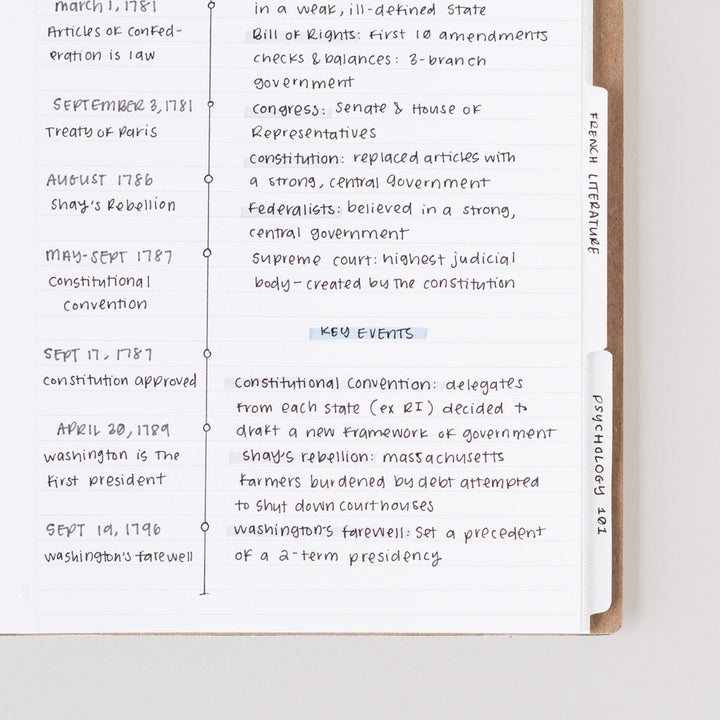 march 1, 1781
Articles of Confed-
eration is law
SEPTEMBER 3, 1781
Treaty of Paris
AUGUST 1786
Shay's Rebellion
MAY-SEPT 1787
Constitutional
convention
SEPT 17, 1787
constitution approved
APRIL 30, 1789
washington is The
first president
SEPT 19, 1796
washington's farewell
in a weak, ill-defined state
Bill of Rights: first 10 amendments
checks & balances: 3-branch
government
congress: Senate & House of
Representatives
constitution: replaced articles with
a strong, central government
Federalists: believed in a strong,
central government
supreme court: highest judicial
body - created by the constitution
KEY EVENTS
constitutional convention: delegates
from each state (ex RI) decided to
draft a new framework of government
shay's rebellion: massachusetts
farmers burdened by debt attempted
to shut down courthouses
washington's farewell: set a precedent
of a 2-term presidency
FRENCH LITERATURE
PSYCHOLOGY 101